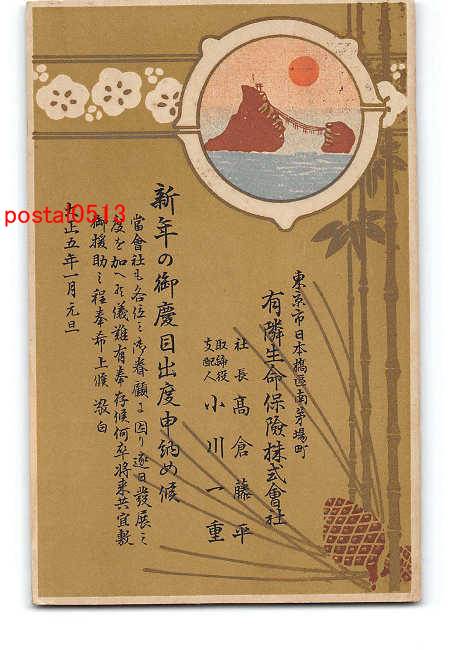 東京市日本橋區南茅場町
有隣生命保險株式會社
社長 高倉藤平
取締役
支配人 小川一重
新年の御慶目出度申納め候
當會社も各位之御眷顧に因り逐日發展之
度を加へ候儀難有奉存候何卒將来共宜敷
御援助之程奉希上候 敬白
大正五年一月元旦
posta0513